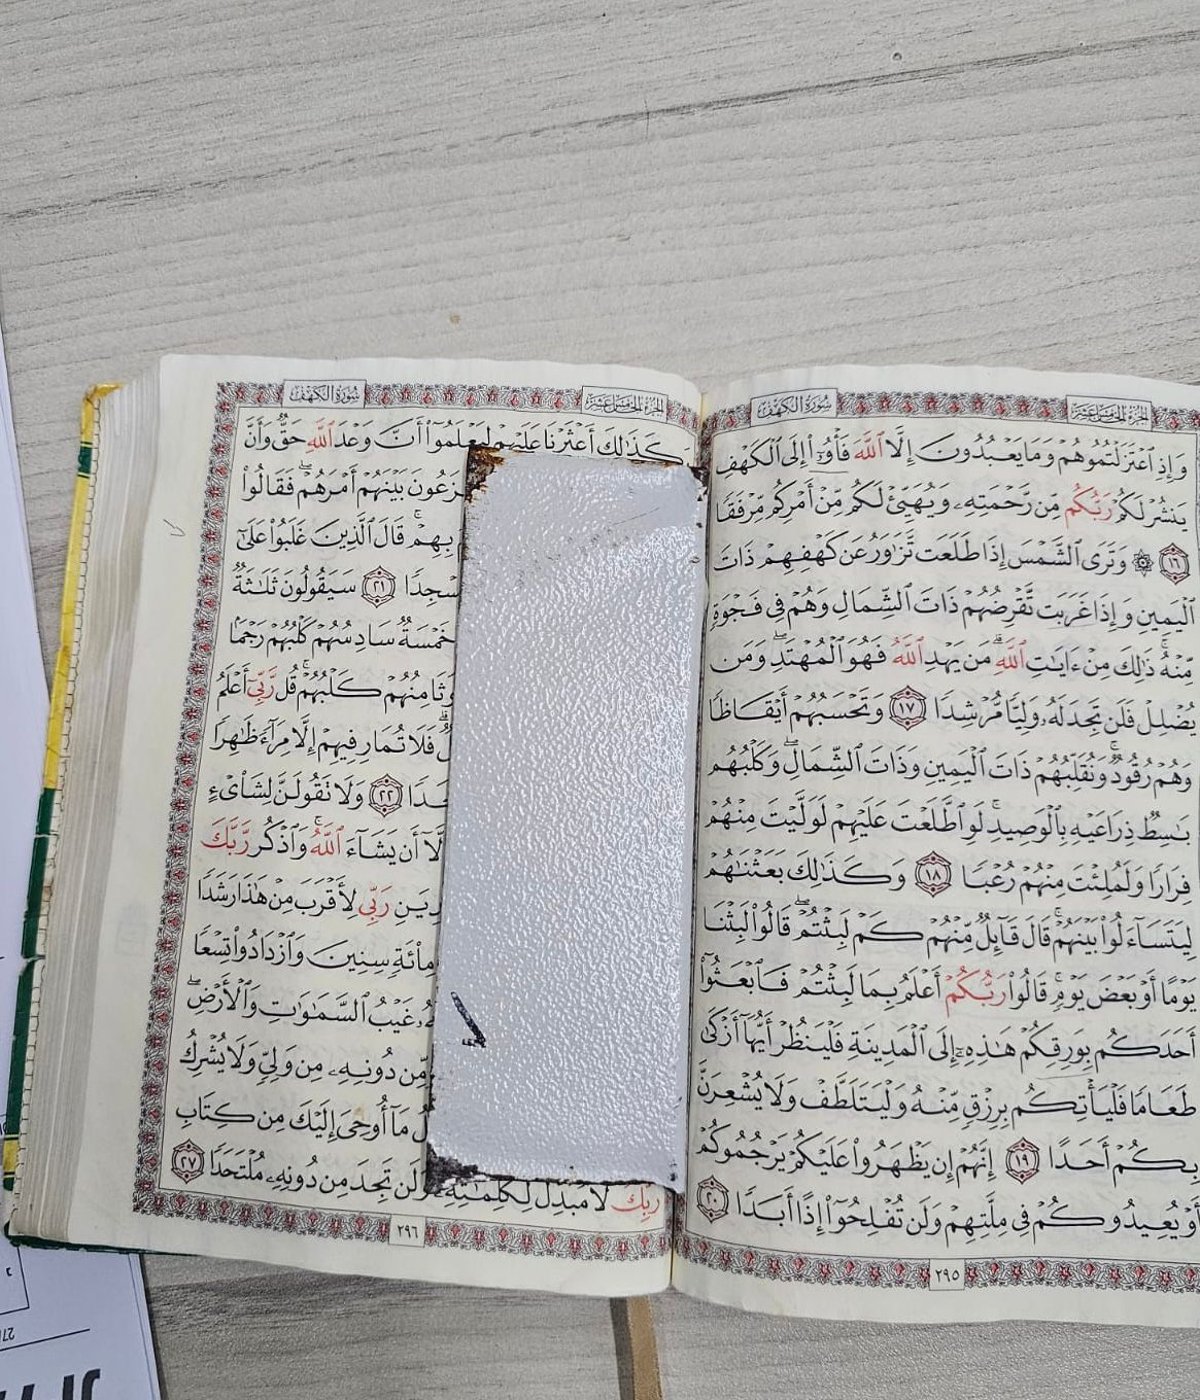 سُورَةُ الكَهْفِ
الجُزْءُ الخَامِسَ عَشَرَ
وَإِذِ ٱعْتَزَلْتُمُوهُمْ وَمَا يَعْبُدُونَ إِلَّا ٱللَّهَ فَأْوُۥٓا۟ إِلَى ٱلْكَهْفِ
يَنشُرْ لَكُمْ رَبُّكُم مِّن رَّحْمَتِهِۦ وَيُهَيِّئْ لَكُم مِّنْ أَمْرِكُم مِّرْفَقًا
١٦ ۞ وَتَرَى ٱلشَّمْسَ إِذَا طَلَعَت تَّزَٰوَرُ عَن كَهْفِهِمْ ذَاتَ
ٱلْيَمِينِ وَإِذَا غَرَبَت تَّقْرِضُهُمْ ذَاتَ ٱلشِّمَالِ وَهُمْ فِى فَجْوَةٍ
مِّنْهُ ۚ ذَٰلِكَ مِنْ ءَايَٰتِ ٱللَّهِ ۗ مَن يَهْدِ ٱللَّهُ فَهُوَ ٱلْمُهْتَدِ ۖ وَمَن
يُضْلِلْ فَلَن تَجِدَ لَهُۥ وَلِيًّا مُّرْشِدًا ١٧ وَتَحْسَبُهُمْ أَيْقَاظًا
وَهُمْ رُقُودٌ ۚ وَنُقَلِّبُهُمْ ذَاتَ ٱلْيَمِينِ وَذَاتَ ٱلشِّمَالِ ۖ وَكَلْبُهُم
بَٰسِطٌ ذِرَاعَيْهِ بِٱلْوَصِيدِ ۚ لَوِ ٱطَّلَعْتَ عَلَيْهِمْ لَوَلَّيْتَ مِنْهُمْ
فِرَارًا وَلَمُلِئْتَ مِنْهُمْ رُعْبًا ١٨ وَكَذَٰلِكَ بَعَثْنَٰهُمْ
لِيَتَسَآءَلُوا۟ بَيْنَهُمْ ۚ قَالَ قَآئِلٌ مِّنْهُمْ كَمْ لَبِثْتُمْ ۖ قَالُوا۟ لَبِثْنَا
يَوْمًا أَوْ بَعْضَ يَوْمٍ ۚ قَالُوا۟ رَبُّكُمْ أَعْلَمُ بِمَا لَبِثْتُمْ فَٱبْعَثُوٓا۟
أَحَدَكُم بِوَرِقِكُمْ هَٰذِهِۦٓ إِلَى ٱلْمَدِينَةِ فَلْيَنظُرْ أَيُّهَآ أَزْكَىٰ
طَعَامًا فَلْيَأْتِكُم بِرِزْقٍ مِّنْهُ وَلْيَتَلَطَّفْ وَلَا يُشْعِرَنَّ
بِكُمْ أَحَدًا ١٩ إِنَّهُمْ إِن يَظْهَرُوا۟ عَلَيْكُمْ يَرْجُمُوكُمْ
أَوْ يُعِيدُوكُمْ فِى مِلَّتِهِمْ وَلَن تُفْلِحُوٓا۟ إِذًا أَبَدًا ٢٠
٢٩٥
الجُزْءُ الخَامِسَ عَشَرَ
سُورَةُ الكَهْفِ
كَذَٰلِكَ أَعْثَرْنَا عَلَيْهِمْ لِيَعْلَمُوٓا۟ أَنَّ وَعْدَ ٱللَّهِ حَقٌّ وَأَنَّ
بَيْنَهُمْ أَمْرَهُمْ ۖ فَقَالُوا۟
بِهِمْ ۚ قَالَ ٱلَّذِينَ غَلَبُوا۟ عَلَىٰٓ
٢١ سَيَقُولُونَ ثَلَٰثَةٌ
خَمْسَةٌ سَادِسُهُمْ كَلْبُهُمْ رَجْمًۢا
وَثَامِنُهُمْ كَلْبُهُمْ ۚ قُل رَّبِّىٓ أَعْلَمُ
فَلَا تُمَارِ فِيهِمْ إِلَّا مِرَآءً ظَٰهِرًا
٢٢ وَلَا تَقُولَنَّ لِشَا۟ىْءٍ
أَن يَشَآءَ ٱللَّهُ ۚ وَٱذْكُر رَّبَّكَ
رَبِّى لِأَقْرَبَ مِنْ هَٰذَا رَشَدًا
مِا۟ئَةٍ سِنِينَ وَٱزْدَادُوا۟ تِسْعًا
غَيْبُ ٱلسَّمَٰوَٰتِ وَٱلْأَرْضِ ۖ
مِّن دُونِهِۦ مِن وَلِىٍّ وَلَا يُشْرِكُ
مَآ أُوحِىَ إِلَيْكَ مِن كِتَابِ
رَبِّكَ لَا مُبَدِّلَ لِكَلِمَٰتِهِۦ وَلَن تَجِدَ مِن دُونِهِۦ مُلْتَحَدًا ٢٧
٢٩٦